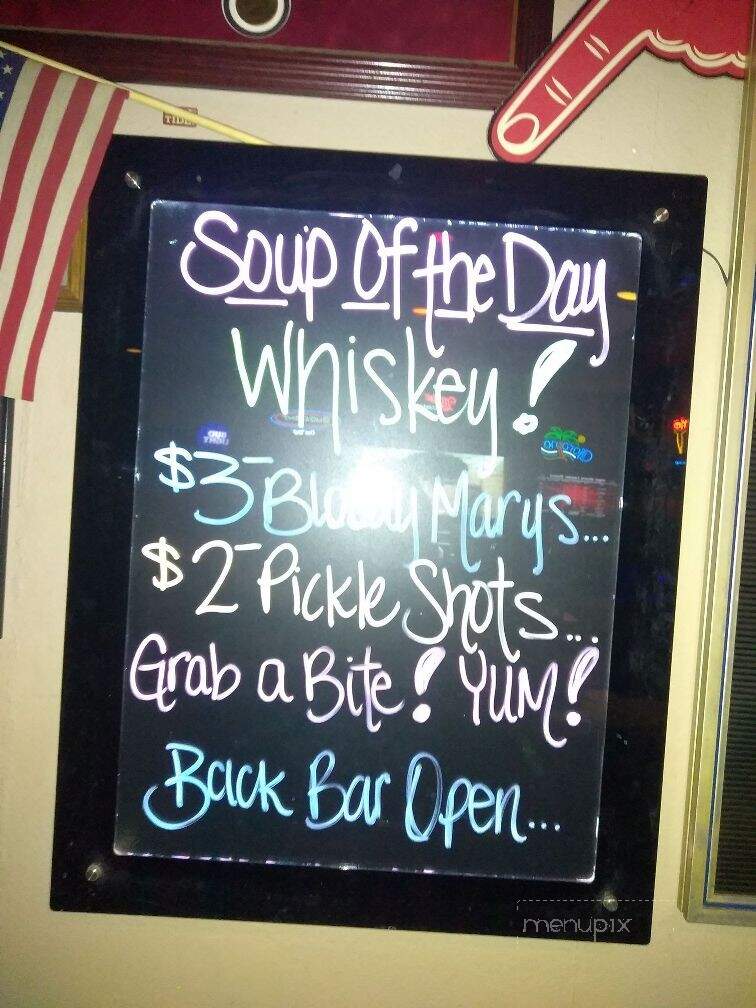 TIDE
Soup Of the Day
Whiskey!
$3- Bloody Marys...
$2- Pickle Shots...
Grab a Bite! YUM!
Back Bar Open...
menupix